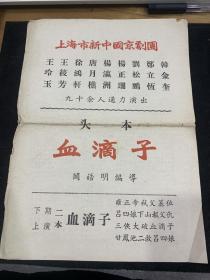 上海市新中國京劇團
王玲玉
王菽芳
徐鴻軒
唐月樵
楊瀛洲
楊正珊
松鵬
鄭立恆
韓金奎
九十余人通力演出
头本
血滴子
聞話明編導
下期上演
二本血滴子
雍正帝弒父篡位
呂四娘下山報父仇
三俠大破血滴子
甘鳳池二救呂四娘